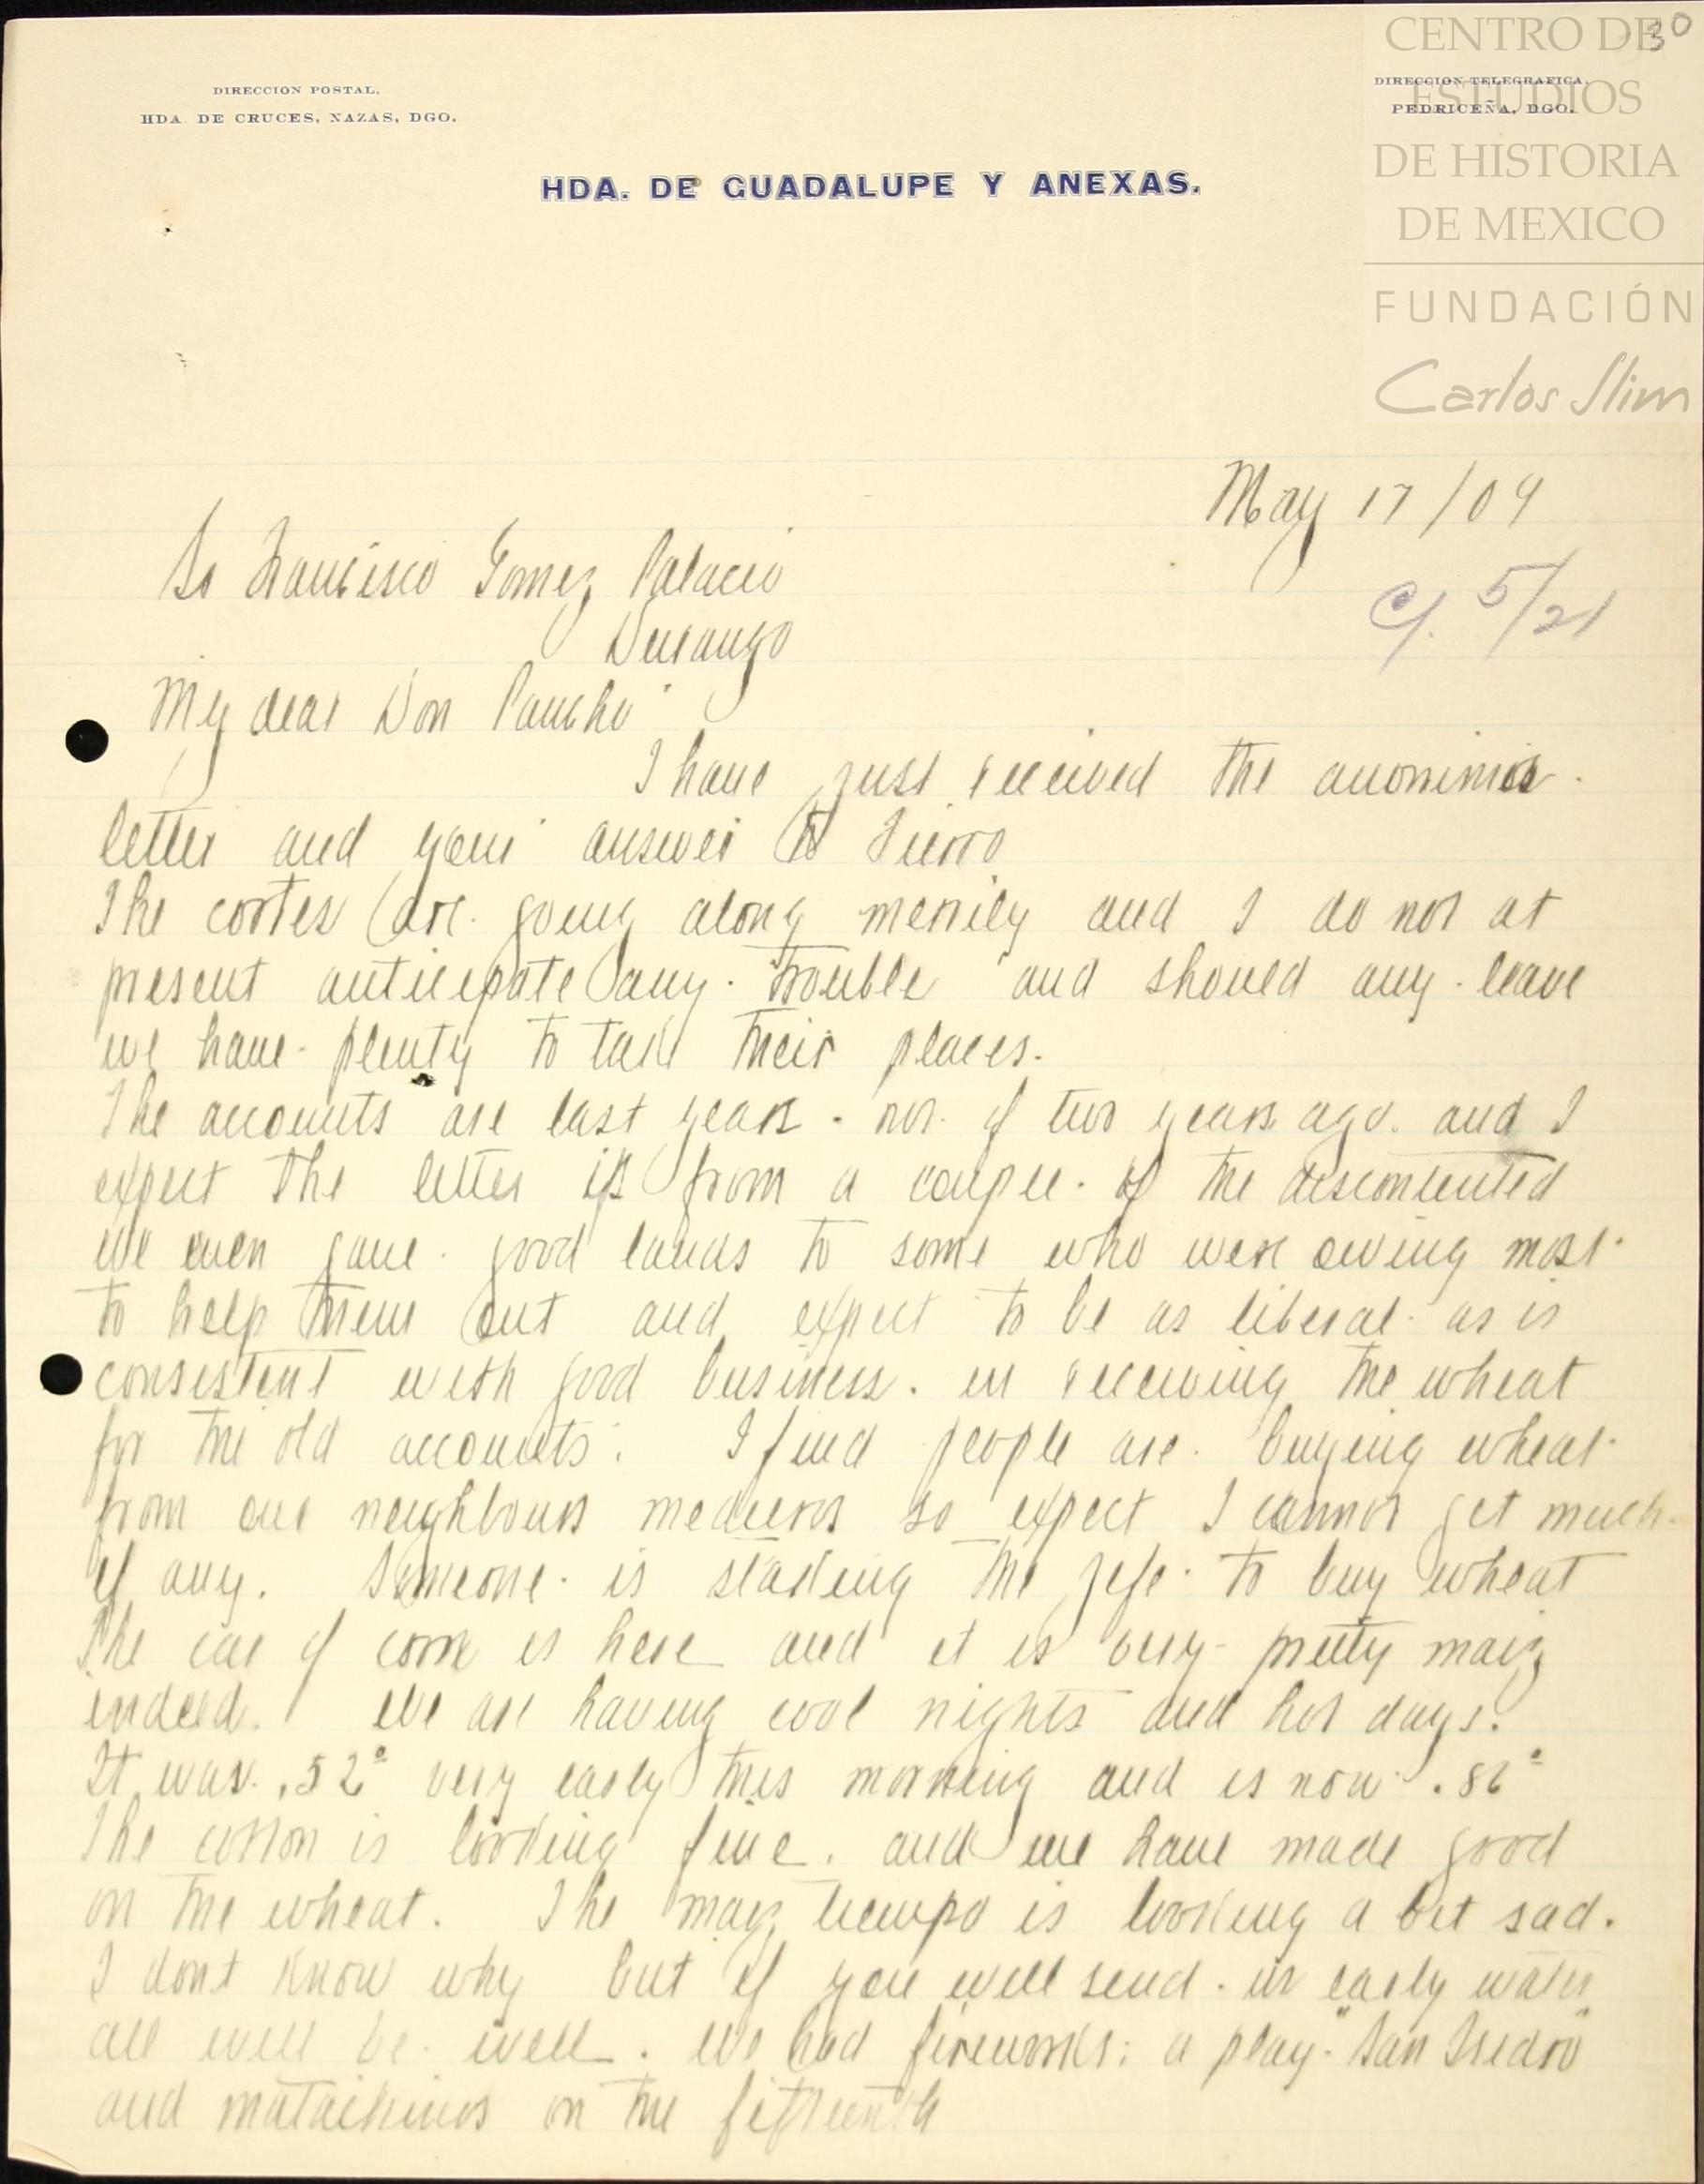 CENTRO DE
ESTUDIOS
DE HISTORIA
DE MEXICO
FUNDACIÓN
Carlos Slim
30
DIRECCION POSTAL.
HDA. DE CRUCES, NAZAS, DGO.
DIRECCION TELEGRAFICA.
PEDRICEÑA, DGO.
HDA. DE GUADALUPE Y ANEXAS.
May 17/09
C/. 5/21
Sr Francisco Gomez Palacio
Durango
My dear Don Pancho
I have just received the
letter and your answer to Fierro
The cortes are going along merrily and I do not at
present anticipate any trouble and should any leave
we have plenty to take their places.
The accounts are last years - not of two years ago. and I
expect the letter is from a couple of the discontented
We even gave good lands to some who were owing most
to help them out and expect to be as liberal as is
consistent with good business. in receiving the wheat
for the old accounts. I find people are buying wheat
from our neighbours medieros so expect I cannot get much
if any. Someone is staking the jefe to buy wheat
The car of corn is here and it is very pretty maiz
indeed. We are having cool nights and hot days.
It was 52° very early this morning and is now 86°
The cotton is looking fine. and we have made good
on the wheat. The maiz tiempo is looking a bit sad.
I dont know why but if you will send us early water
all will be well. We had fireworks; a play "San Isidro"
and matachinos on the fifteenth